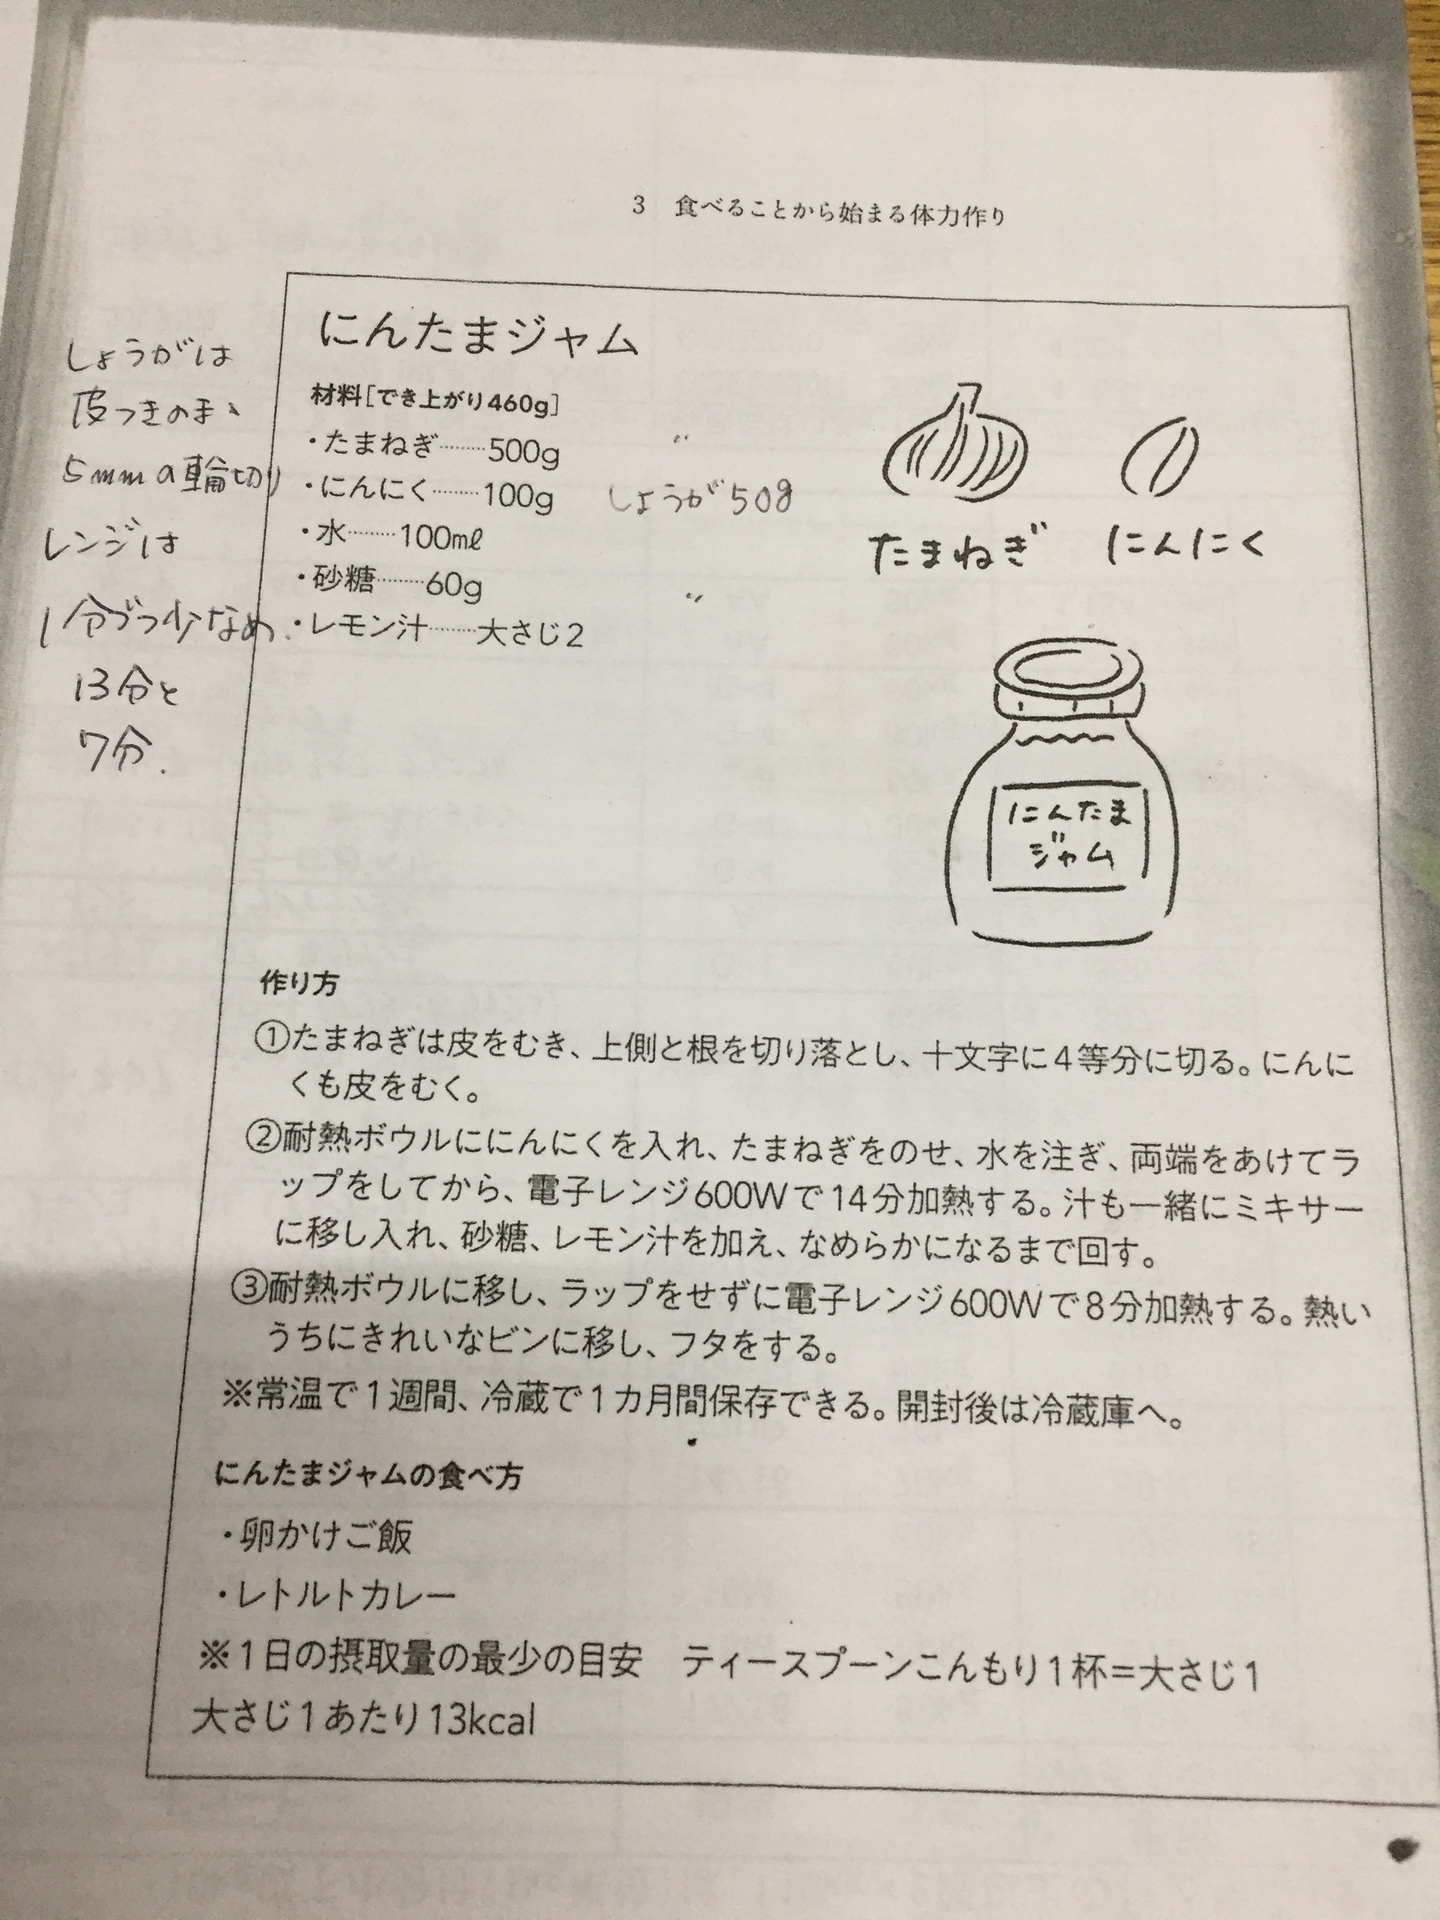 3 食べることから始まる体力作り
にんたまジャム
材料[でき上がり460g]
・たまねぎ………500g 〃
・にんにく………100g しょうが50g
・水………100mℓ
・砂糖………60g 〃
・レモン汁………大さじ2
しょうがは
皮つきのまゝ
5mmの輪切り
レンジは
1分づつ少なめ.
13分と
7分.
たまねぎ
にんにく
にんたま
ジャム
作り方
①たまねぎは皮をむき、上側と根を切り落とし、十文字に4等分に切る。にんに
くも皮をむく。
②耐熱ボウルににんにくを入れ、たまねぎをのせ、水を注ぎ、両端をあけてラ
ップをしてから、電子レンジ600Wで14分加熱する。汁も一緒にミキサー
に移し入れ、砂糖、レモン汁を加え、なめらかになるまで回す。
③耐熱ボウルに移し、ラップをせずに電子レンジ600Wで8分加熱する。熱い
うちにきれいなビンに移し、フタをする。
※常温で1週間、冷蔵で1カ月間保存できる。開封後は冷蔵庫へ。
にんたまジャムの食べ方
・卵かけご飯
・レトルトカレー
※1日の摂取量の最少の目安 ティースプーンこんもり1杯＝大さじ1
大さじ1あたり13kcal